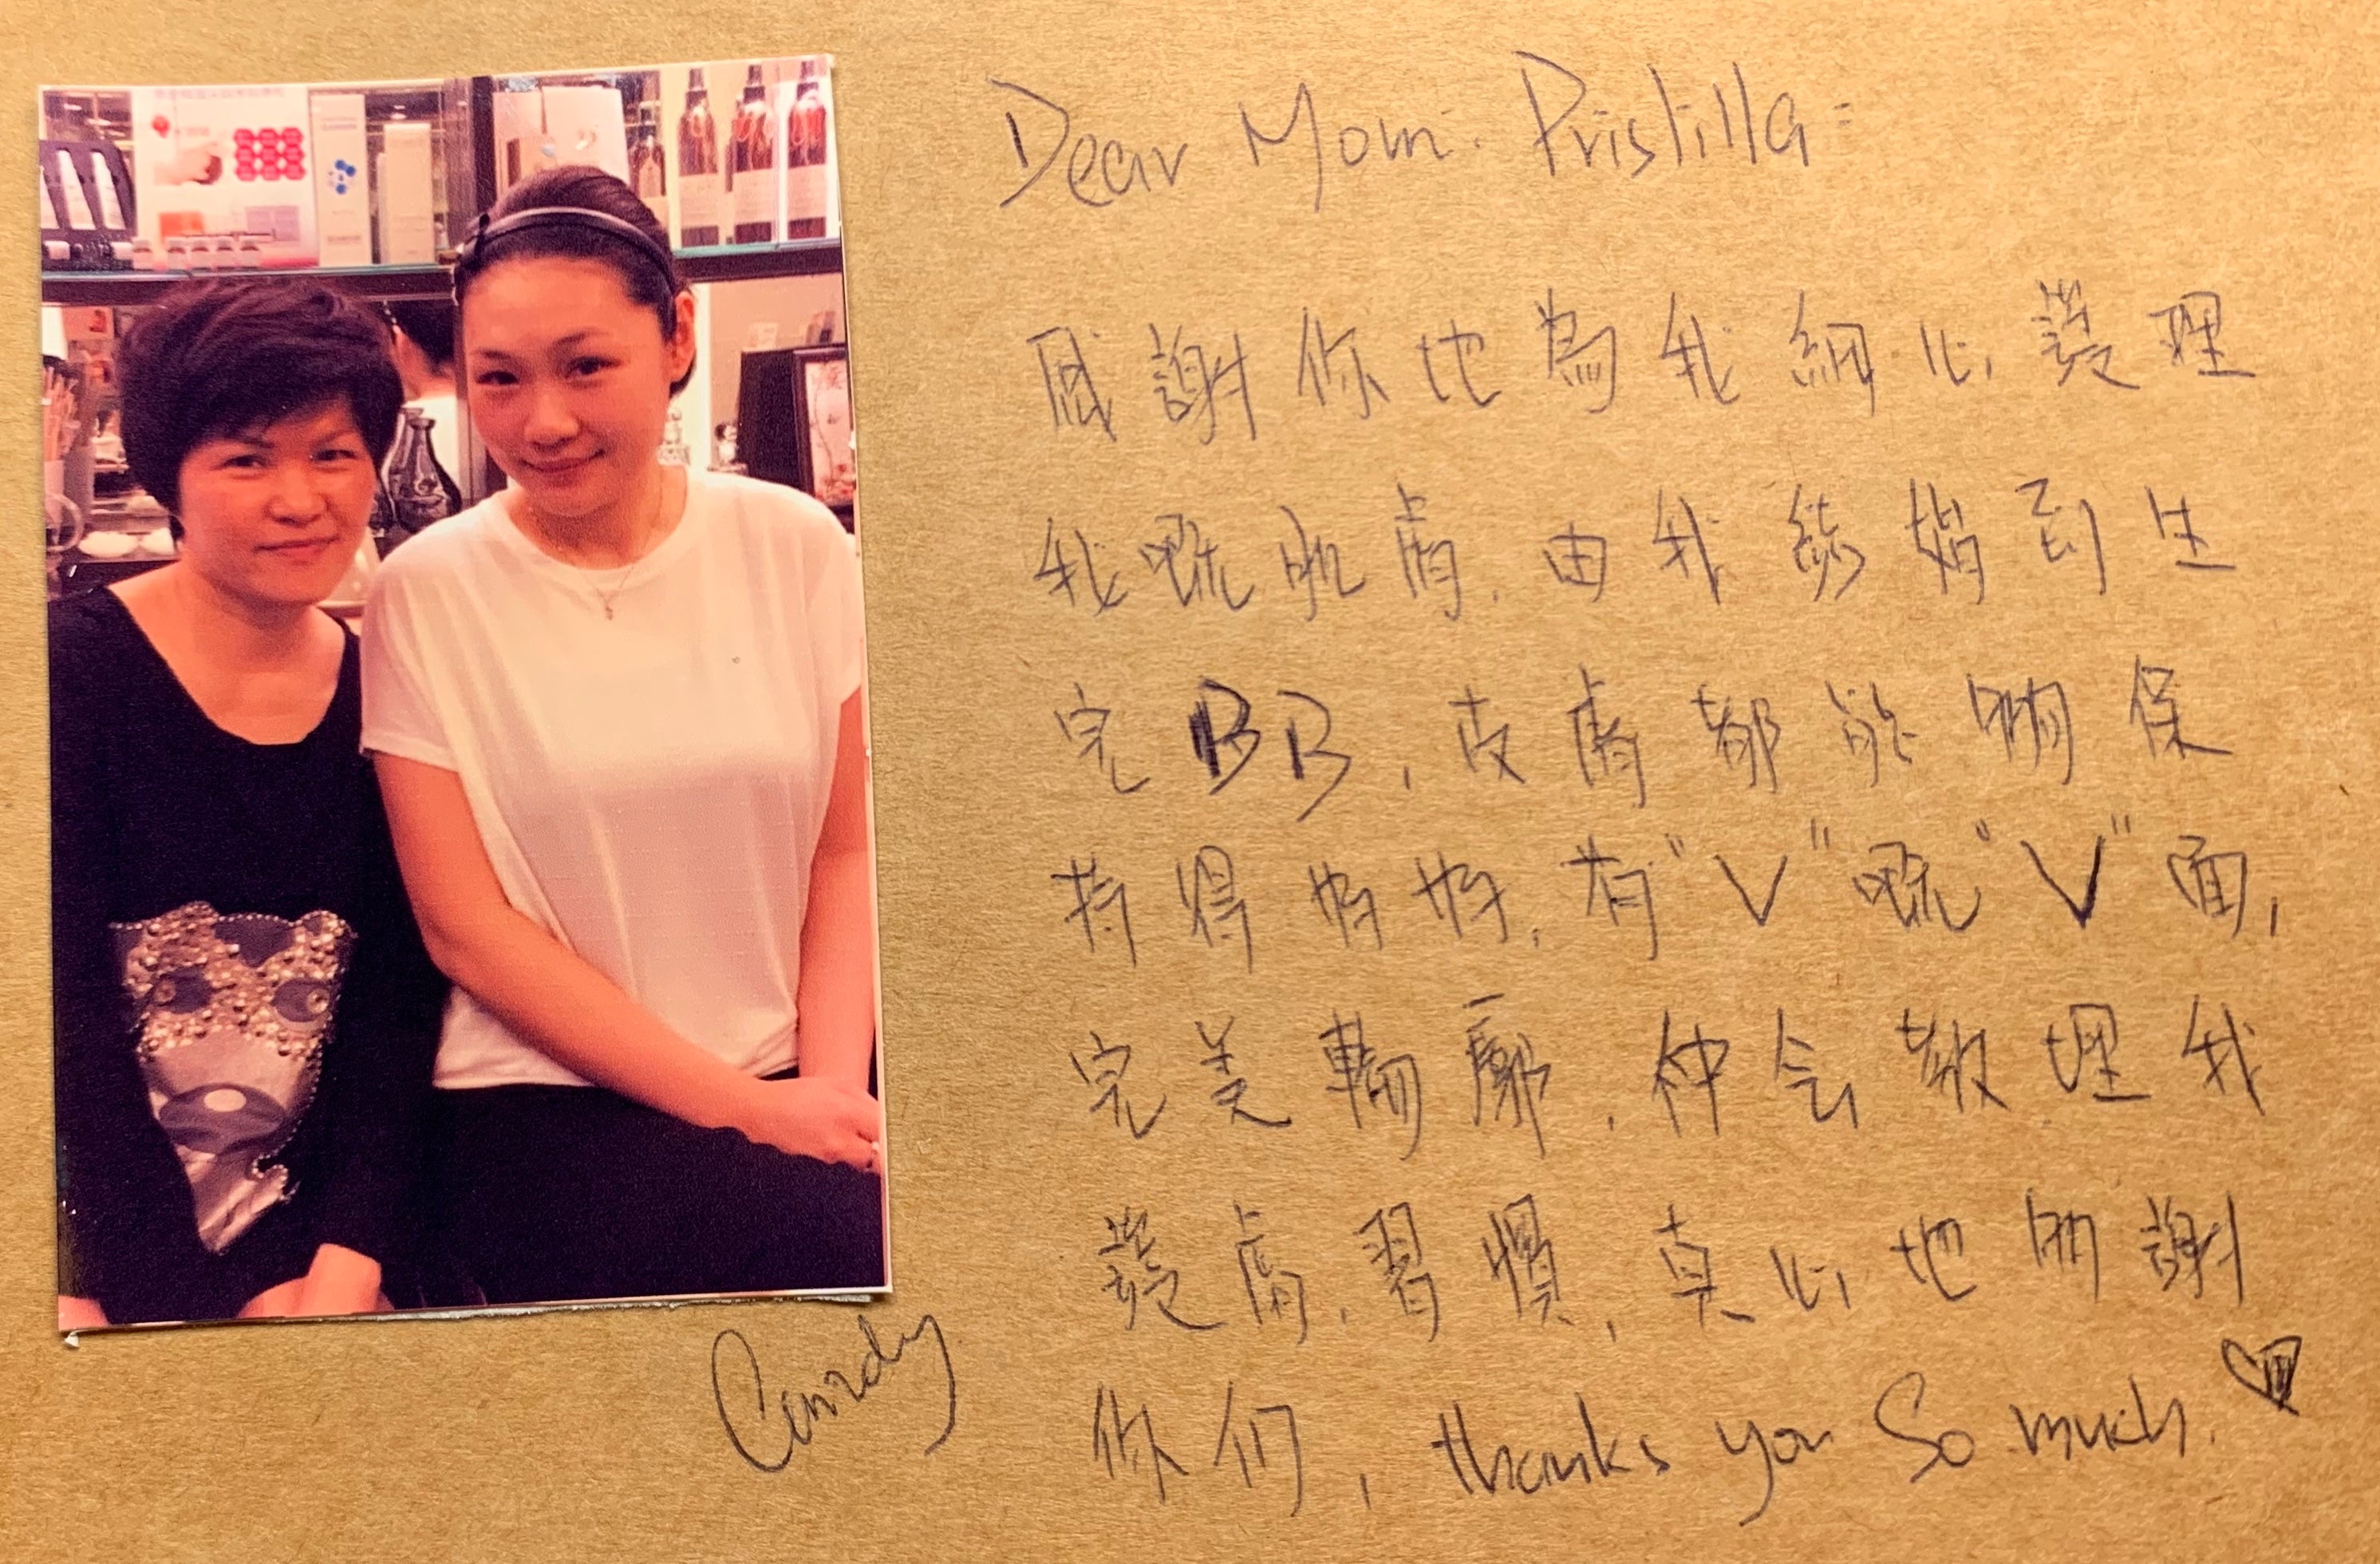 Dear Mom. Pristilla:
感謝你地為我細心護理
我嘅肌膚. 由我結婚到生
完BB, 皮膚都能夠保
持得好好, 有"V"嘅"V"面,
完美輪廓, 仲会教埋我
護膚習慣, 真心地多謝
你们, thanks you So much.
Candy